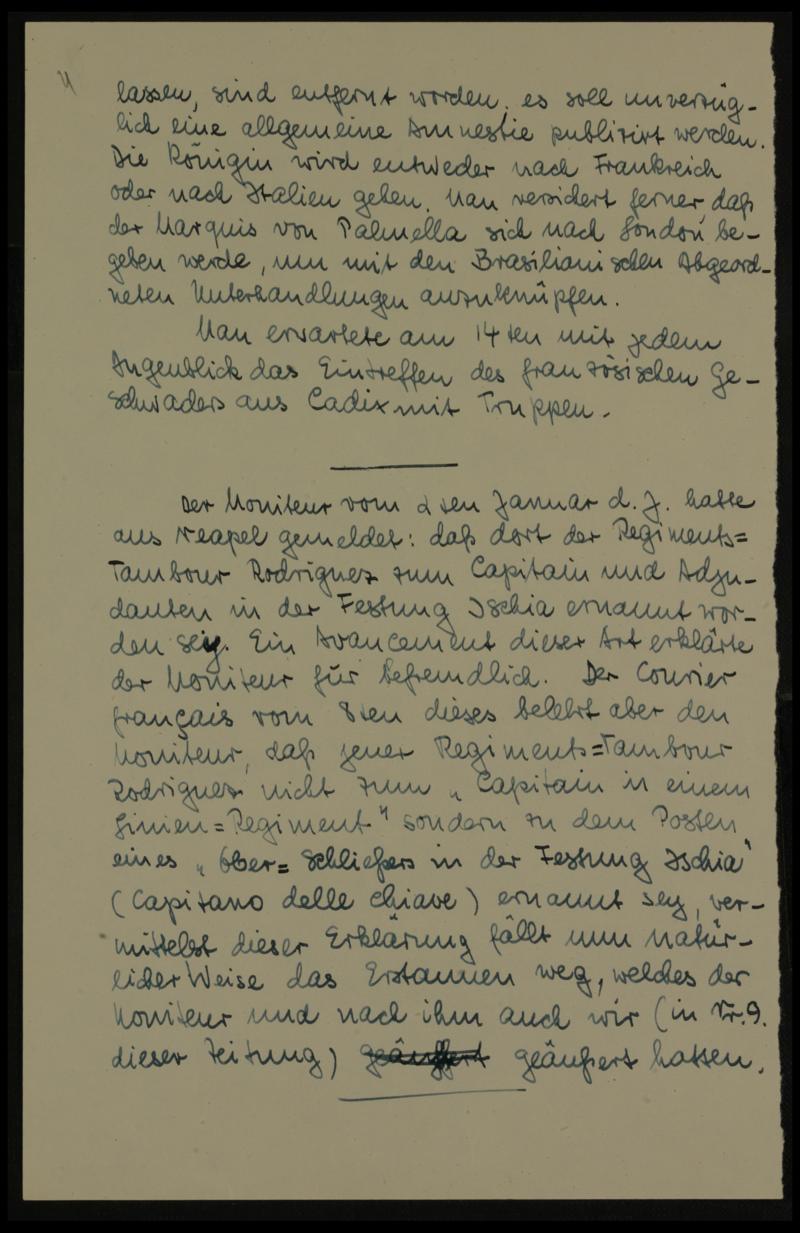 lassen, sind entfernt worden. es soll unverzüg-
lich eine allgemeine Amnestie publizirt werden.
Die Königin wird entweder nach Frankreich
oder nach Italien gehen. Man versichert ferner, daß
der Marquis von Palmella sich nach London be-
geben werde, um mit den Brasilianischen Abgeord-
neten Unterhandlungen anzuknüpfen.
Man erwartete am 14ten mit jedem
Augenblick das Eintreffen des französischen Ge-
schwaders aus Cadix mit Truppen.
Der Moniteur vom 2ten Januar d. J. hatte
aus Neapel gemeldet: daß dort der Regiments=
Tambour Rodriguez zum Capitain und Adju-
danten in der Festung Ischia ernannt wor-
den sey. Ein Avancement dieser Art erklärte
der Moniteur für befremdlich. Der Courier
français vom 8ten dieses belehrt aber den
Moniteur, daß jener Regiments=Tambour
Rodriguez nicht zum „Capitain in einem
Linien=Regiment" sondern zu dem Posten
eines „Ober=Schließers in der Festung Ischia"
(Capitano delle chiave) ernannt sey, ver-
mittelst dieser Erklärung fällt nun natür-
licher Weise das Erstaunen weg, welches der
Moniteur und nach ihm auch wir (in Nr. 9.
dieser Zeitung) geäußert hatten.